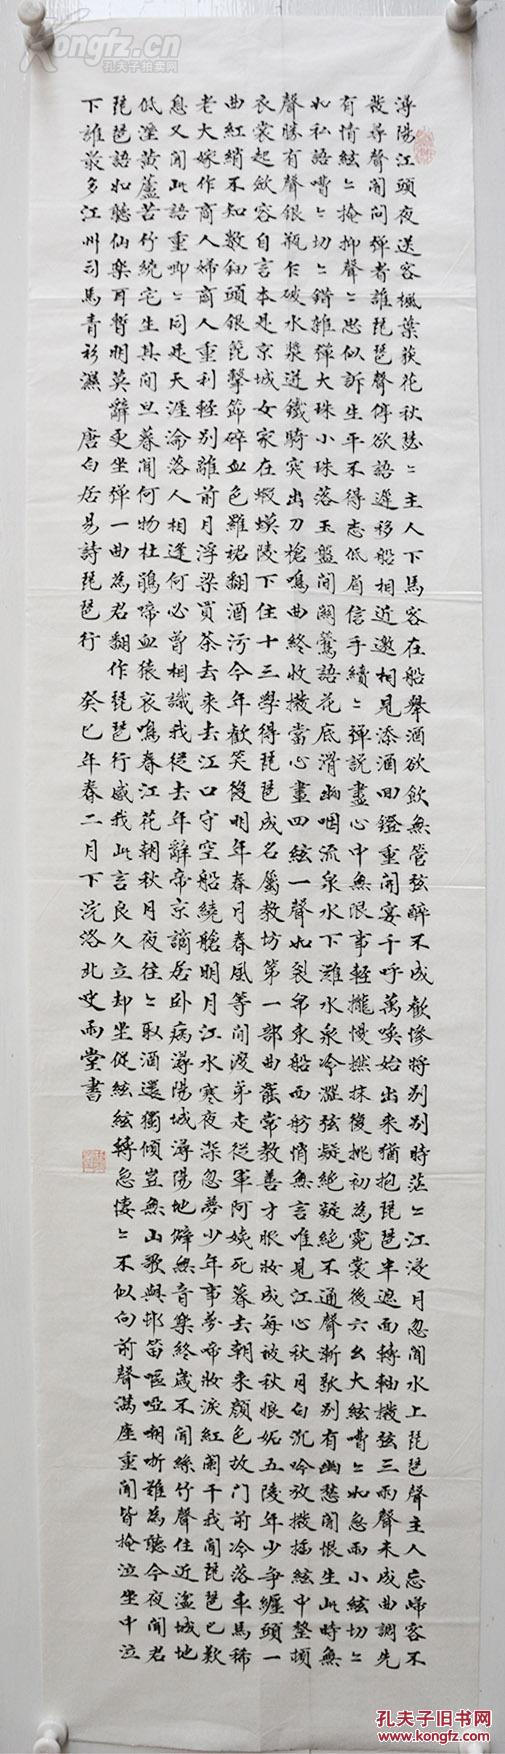 潯陽江頭夜送客楓葉荻花秋瑟〻主人下馬客在船舉酒欲飲無管弦醉不成歡慘將別別時茫〻江浸月忽聞水上琵琶聲主人忘歸客不
發尋聲闇問彈者誰琵琶聲停欲語遲移船相近邀相見添酒回燈重開宴千呼萬喚始出來猶抱琵琶半遮面轉軸撥弦三兩聲未成曲調先
有情絃〻掩抑聲〻思似訴生平不得志低眉信手續〻彈說盡心中無限事輕攏慢撚抹復挑初為霓裳後六幺大絃嘈〻如急雨小絃切〻
如私語嘈〻切〻錯雜彈大珠小珠落玉盤間關鶯語花底滑幽咽流泉水下灘水泉冷澀弦凝絕凝絕不通聲漸歇別有幽愁闇恨生此時無
聲勝有聲銀瓶乍破水漿迸鐵騎突出刀槍鳴曲終收撥當心畫四絃一聲如裂帛東船西舫悄無言唯見江心秋月白沉吟放撥插絃中整頓
衣裳起斂容自言本是京城女家在蝦蟆陵下住十三學得琵琶成名屬教坊第一部曲罷常教善才服妝成每被秋娘妬五陵年少爭纏頭一
曲紅綃不知數鈿頭銀篦擊節碎血色羅裙翻酒污今年歡笑復明年春月春風等閒渡弟走從軍阿姨死暮去朝來顏色故門前冷落車馬稀
老大嫁作商人婦商人重利輕別離前月浮梁買茶去來去江口守空船繞艙明月江水寒夜深忽夢少年事夢啼妝淚紅闌干我聞琵琶已歎
息又聞此語重唧〻同是天涯淪落人相逢何必曾相識我從去年辭帝京謫居臥病潯陽城潯陽地僻無音樂終歲不聞絲竹聲住近湓城地
低溼黃蘆苦竹繞宅生其間旦暮聞何物杜鵑啼血猿哀鳴春江花朝秋月夜往〻取酒還獨傾豈無山歌與邨笛嘔啞啁哳難為聽今夜聞君
琵琶語如聽仙樂耳暫明莫辭更坐彈一曲為君翻作琵琶行感我此言良久立却坐促絃絃轉急悽〻不似向前聲滿座重聞皆掩泣坐中泣
下誰最多江州司馬青衫濕　唐白居易詩琵琶行　癸巳年春二月下浣洛北叟雨堂書
Kongfz.cn
孔夫子拍卖网
孔夫子旧书网
www.kongfz.com